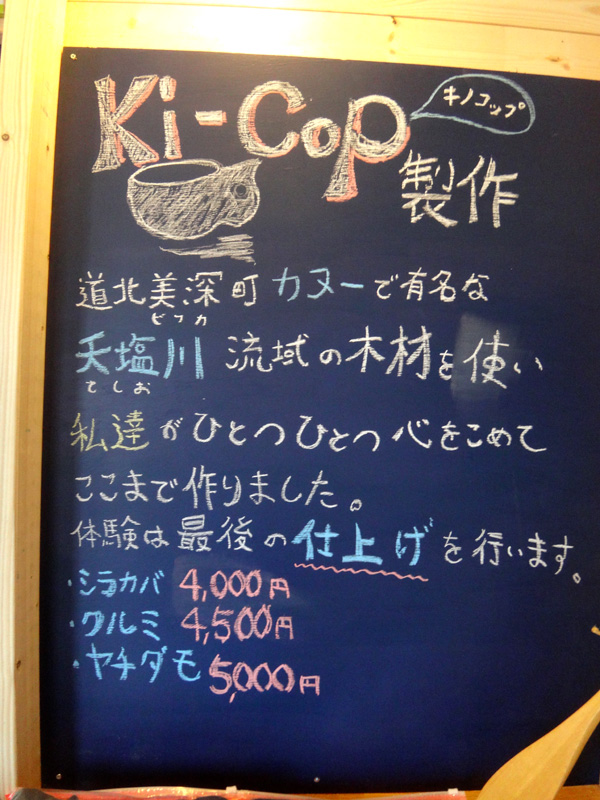 Ki-Cop
キノコップ
製作
道北美深町 カヌーで有名な
ビフカ
天塩川 流域の木材を使い
てしお
私達がひとつひとつ心をこめて
ここまで作りました。
体験は最後の仕上げを行います。
・シラカバ 4,000円
・クルミ 4,500円
・ヤチダモ 5,000円